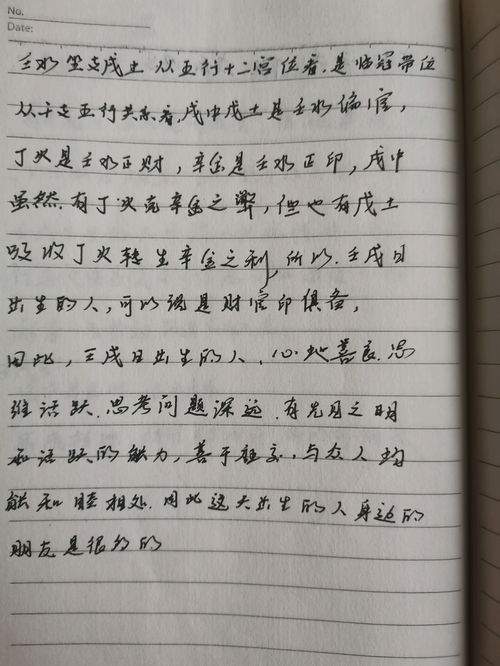 No.
Date:
壬水坐支戌土 从五行十二宫位看,是临冠带位
从干支五行关系看,戌中戊土是壬水偏官,
丁火是壬水正财,辛金是壬水正印,戌中
虽然有丁火克辛金之弊,但也有戊土
吸收丁火转生辛金之利,所以.壬戌日
出生的人,可以说是财官印俱备,
因此,壬戌日出生的人.心地善良.思
维活跃.思考问题深远.有先见之明
和活跃的能力,善于社交,与众人均
能和睦相处.因此这天出生的人身边的
朋友是很多的